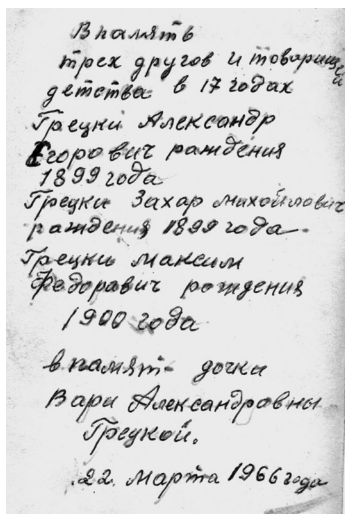 В память
трех другов и товарищей
детства в 17 годах
Грецки Александр
Егорович раждения
1899 года
Грецки Захар михойлович
раждения 1899 года
Грецки максим
Федоравич рождения
1900 года
в памят- дочки
Вари Александравны
Грецкой.
22. марта 1966 года